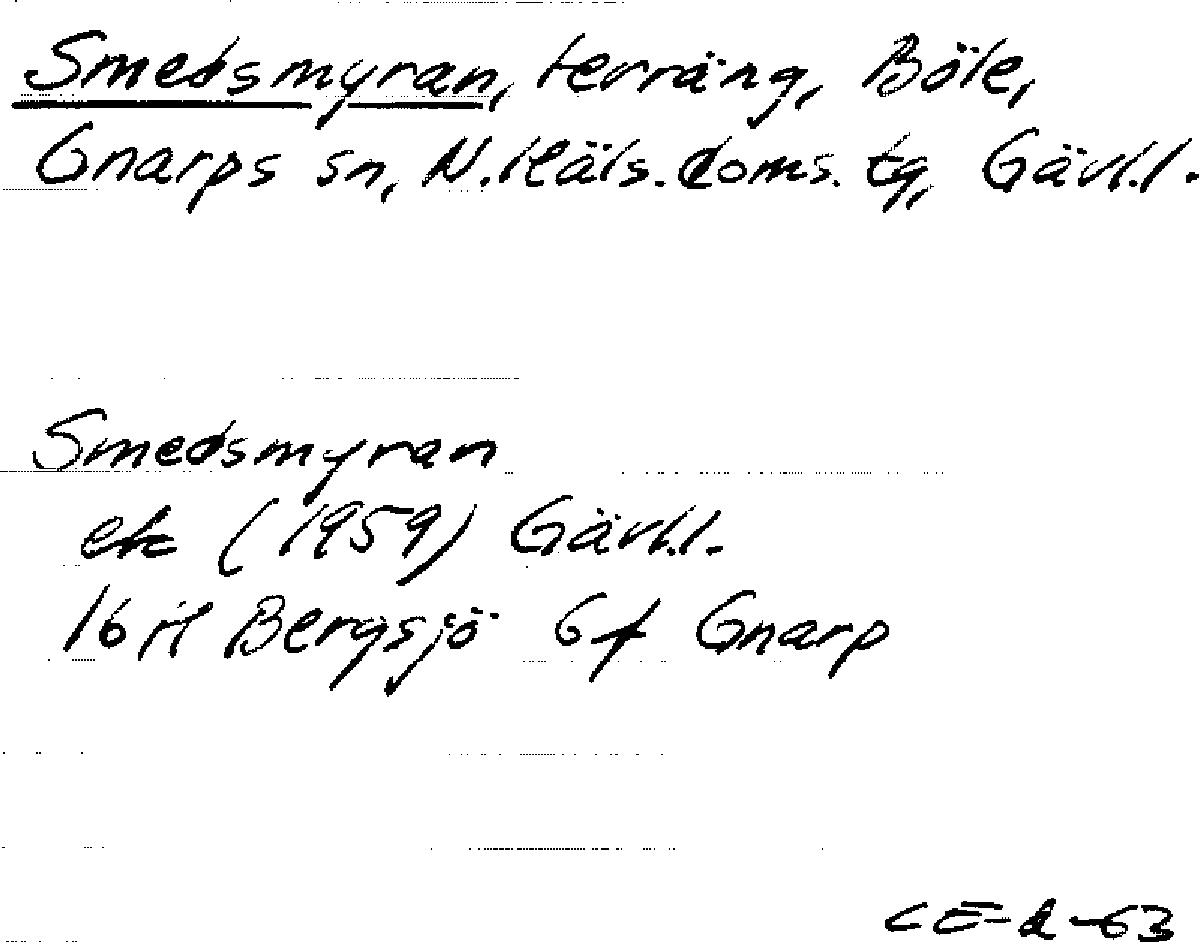 Smedsmyran, terräng, Böle,
Gnarps sn, N. Häls. doms. tg, Gävl.l.
Smedsmyran
ek (1959) Gävl.l.
16 H Bergsjö 6f Gnarp